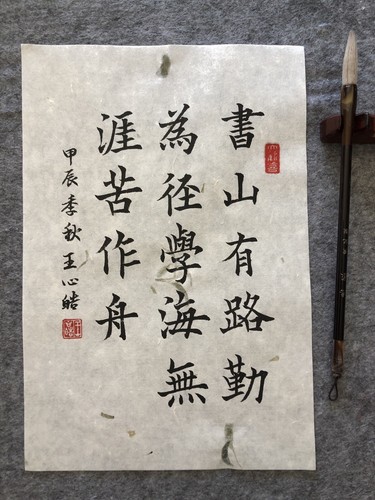 書山有路勤
為徑學海無
涯苦作舟
甲辰季秋王心皓